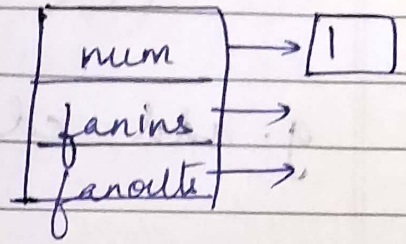 num 1
fanins
fanouts